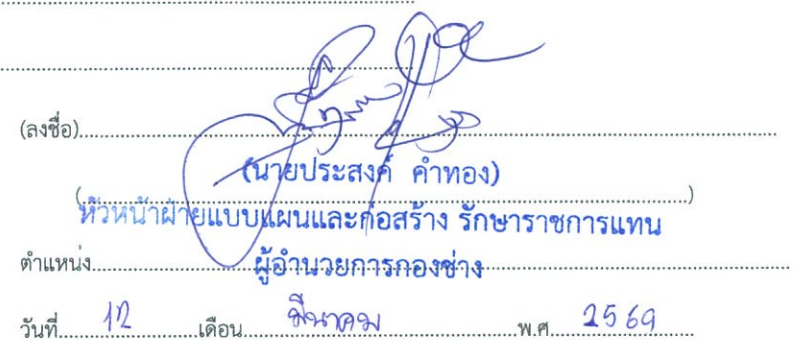 (ลงชื่อ)
(นายประสงค์ คำทอง)
(....................)
หัวหน้าฝ่ายแบบแผนและก่อสร้าง รักษาราชการแทน
ตำแหน่ง ผู้อำนวยการกองช่าง
วันที่ 12 เดือน มีนาคม พ.ศ. 2569